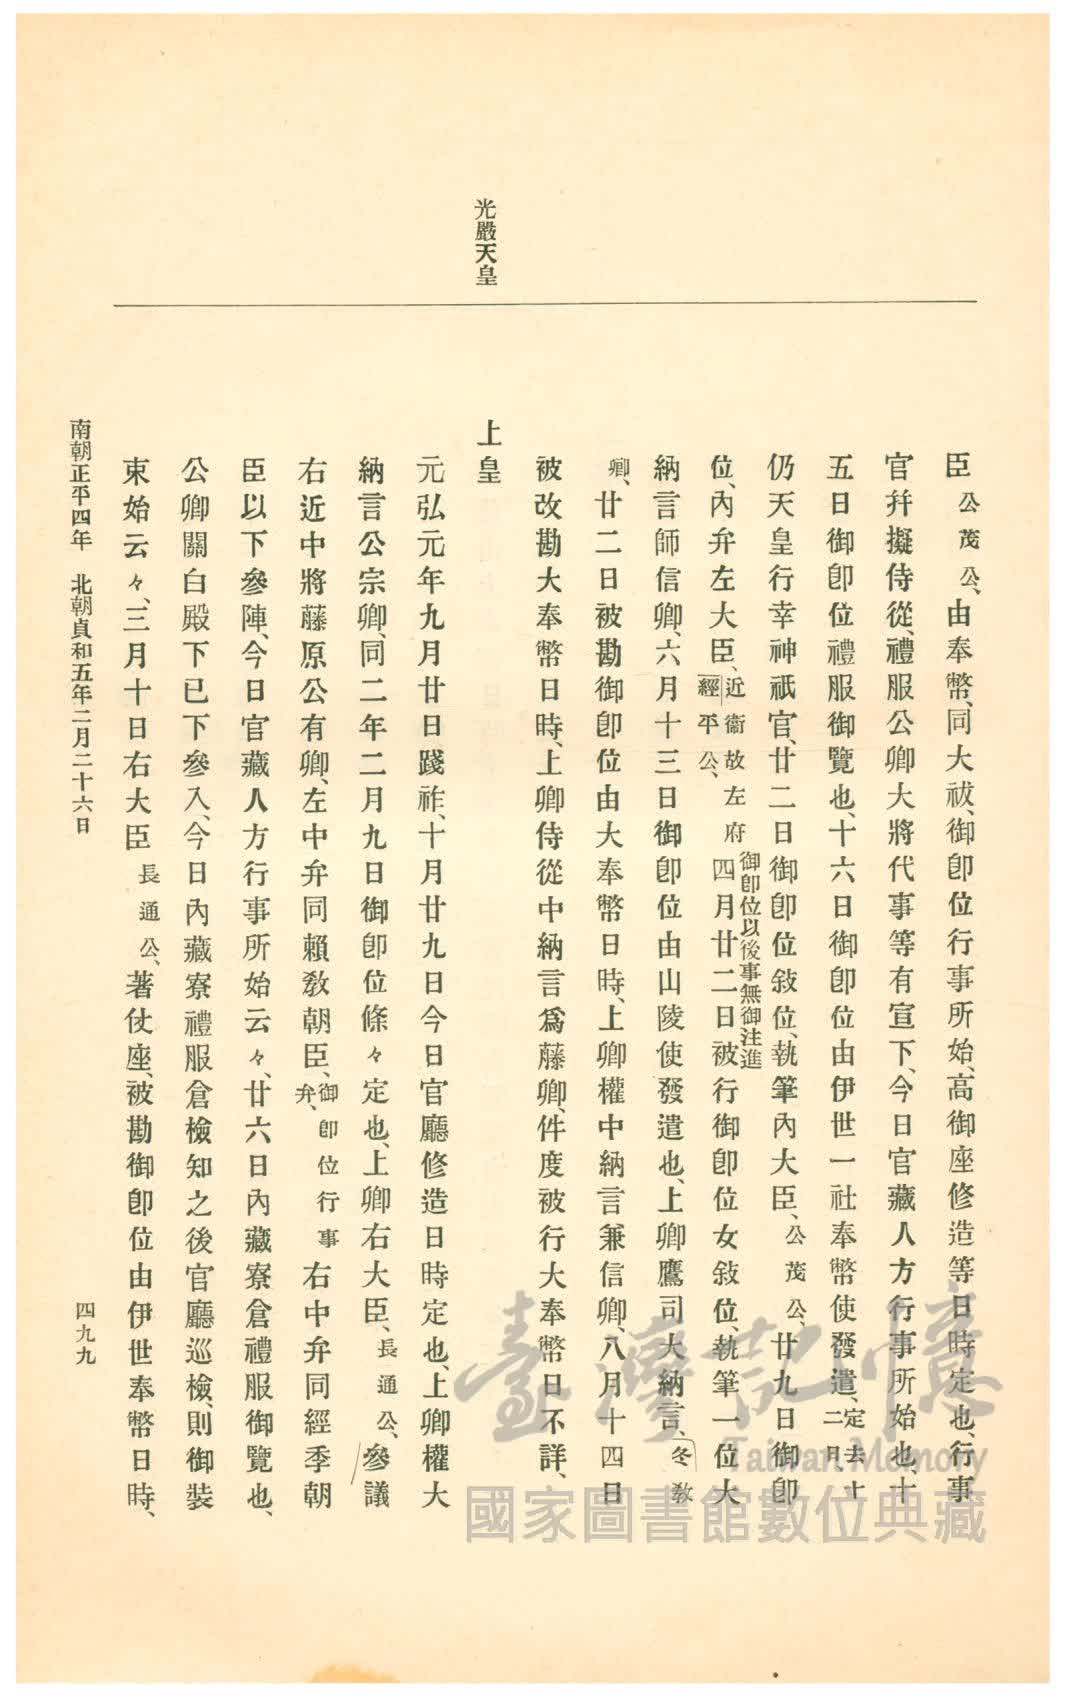 光嚴天皇
臣公茂公、由奉幣、同大祓、御卽位行事所始、高御座修造等日時定也、行事
官幷擬侍從、禮服公卿大將代事等有宣下、今日官藏人方行事所始也、十
五日御卽位禮服御覽也、十六日御卽位由伊世一社奉幣使發遣、定去二月十
仍天皇行幸神祇官、廿二日御卽位敍位、執筆內大臣、公茂公、廿九日御卽
位、內弁左大臣、近衞故左府經平公、御卽位以後事無御注進四月廿二日被行御卽位女敍位、執筆一位大
納言師信卿、六月十三日御卽位由山陵使發遣也、上卿鷹司大納言、冬敎
卿、廿二日被勘御卽位由大奉幣日時、上卿權中納言兼信卿、八月十四日
被改勘大奉幣日時、上卿侍從中納言爲藤卿、件度被行大奉幣日不詳、
上皇
元弘元年九月廿日踐祚、十月廿九日今日官廳修造日時定也、上卿權大
納言公宗卿、同二年二月九日御卽位條々定也、上卿右大臣、長通公、參議
右近中將藤原公有卿、左中弁同賴敎朝臣、御卽位行事弁、右中弁同經季朝
臣以下參陣、今日官藏人方行事所始云々、廿六日內藏寮倉禮服御覽也、
公卿關白殿下已下參入、今日內藏寮禮服倉檢知之後官廳巡檢、則御裝
束始云々、三月十日右大臣長通公、著仗座、被勘御卽位由伊世奉幣日時、
南朝正平四年 北朝貞和五年二月二十六日
四九九
臺灣記憶
Taiwan Memory
國家圖書館數位典藏